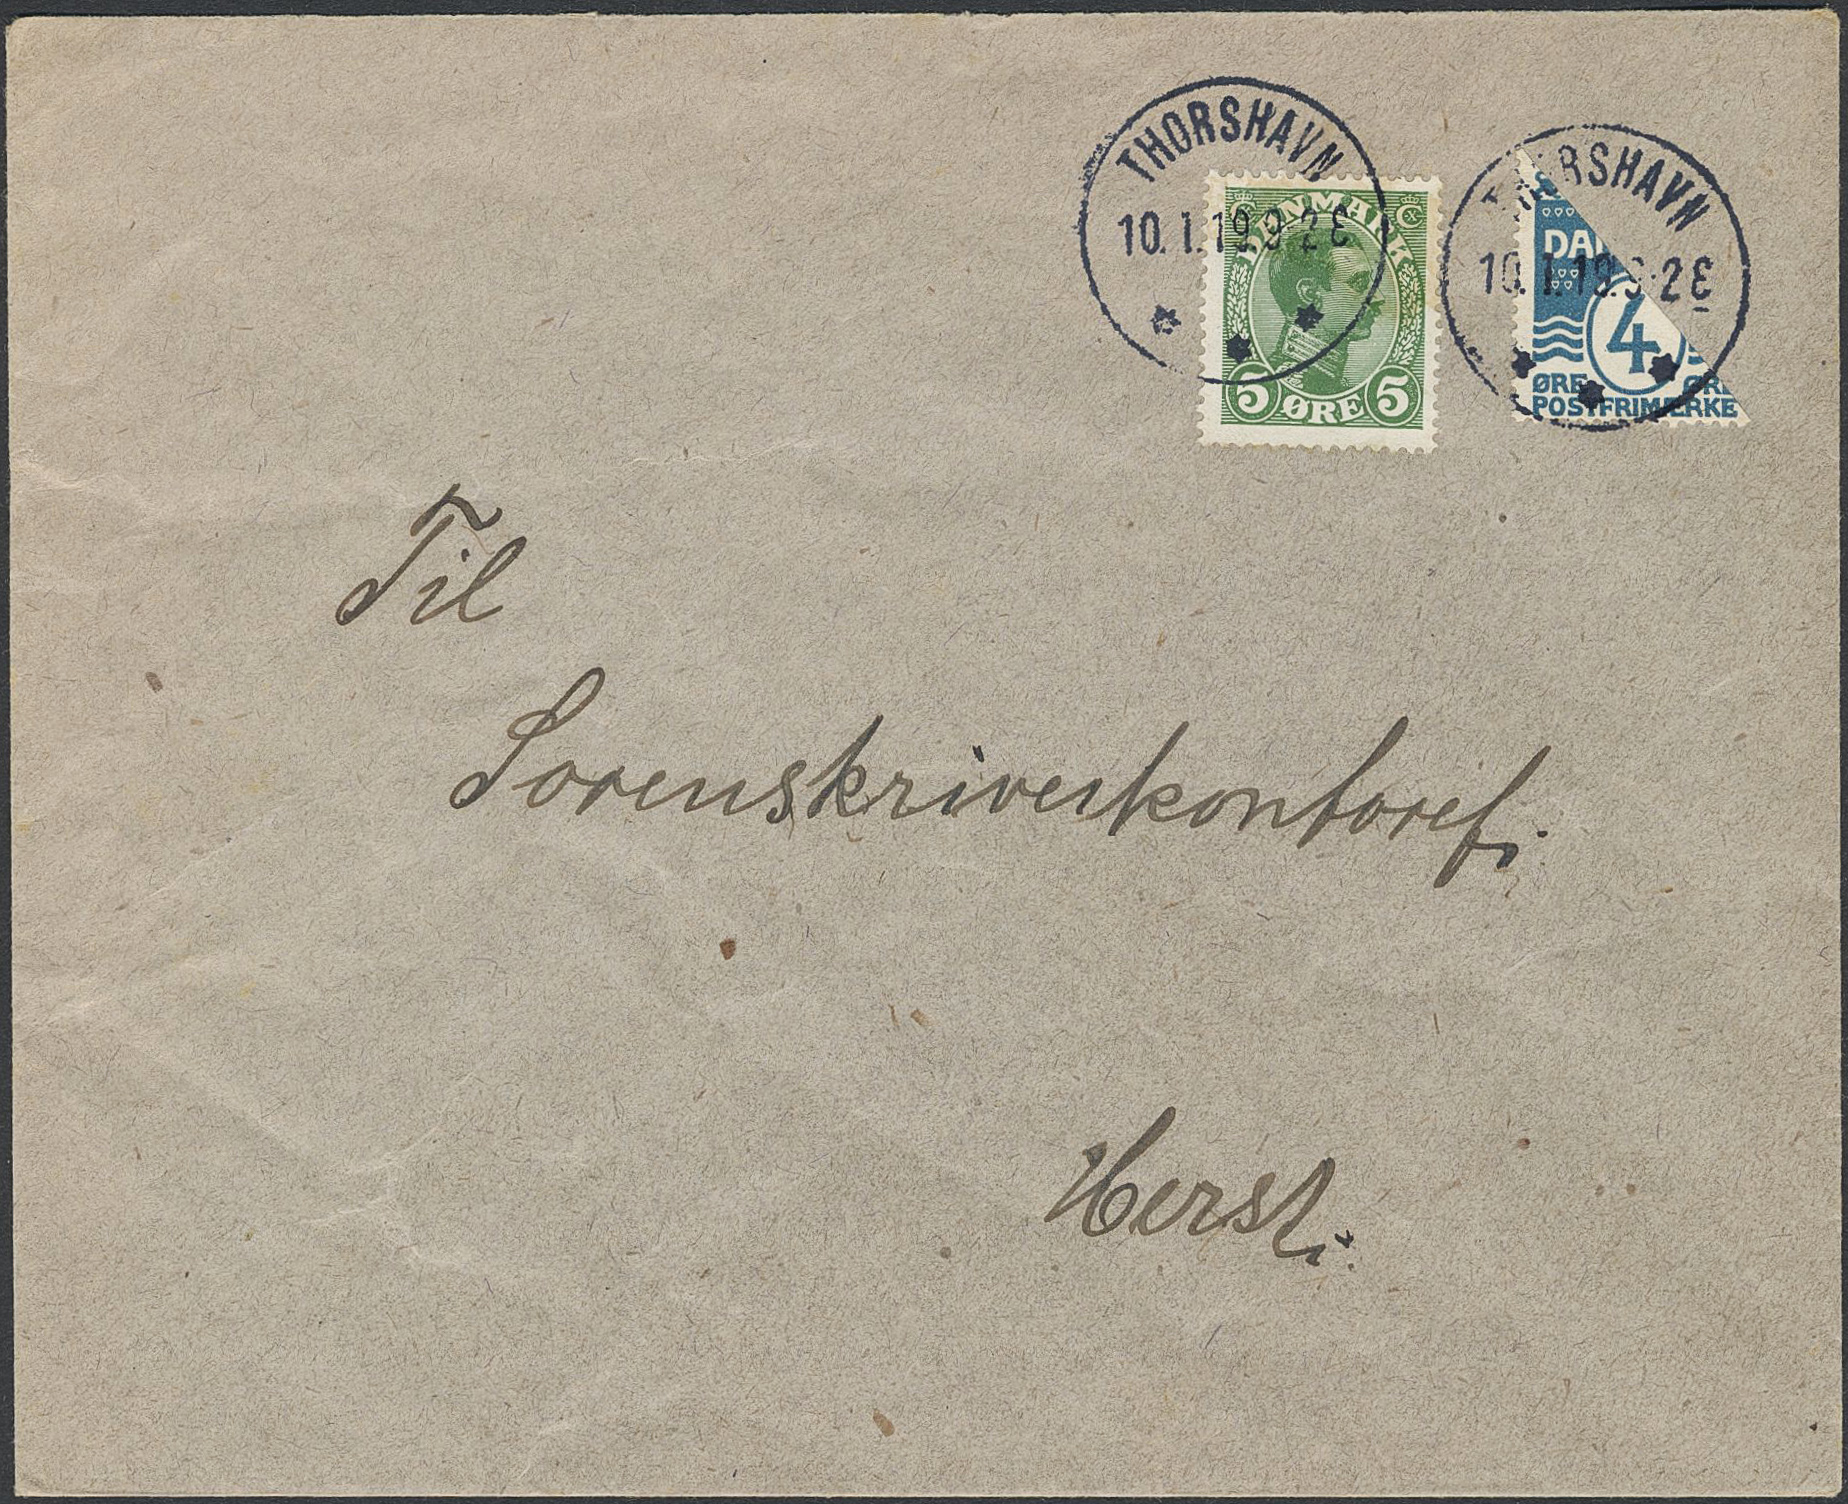 THORSHAVN
10.1.19.9-2E
DANMARK
5 ØRE 5
THORSHAVN
10.1.19.9-2E
DA
4
ØRE ØRE
POSTFRIMÆRKE
Til
Sorenskriverkontoret,
Herst.